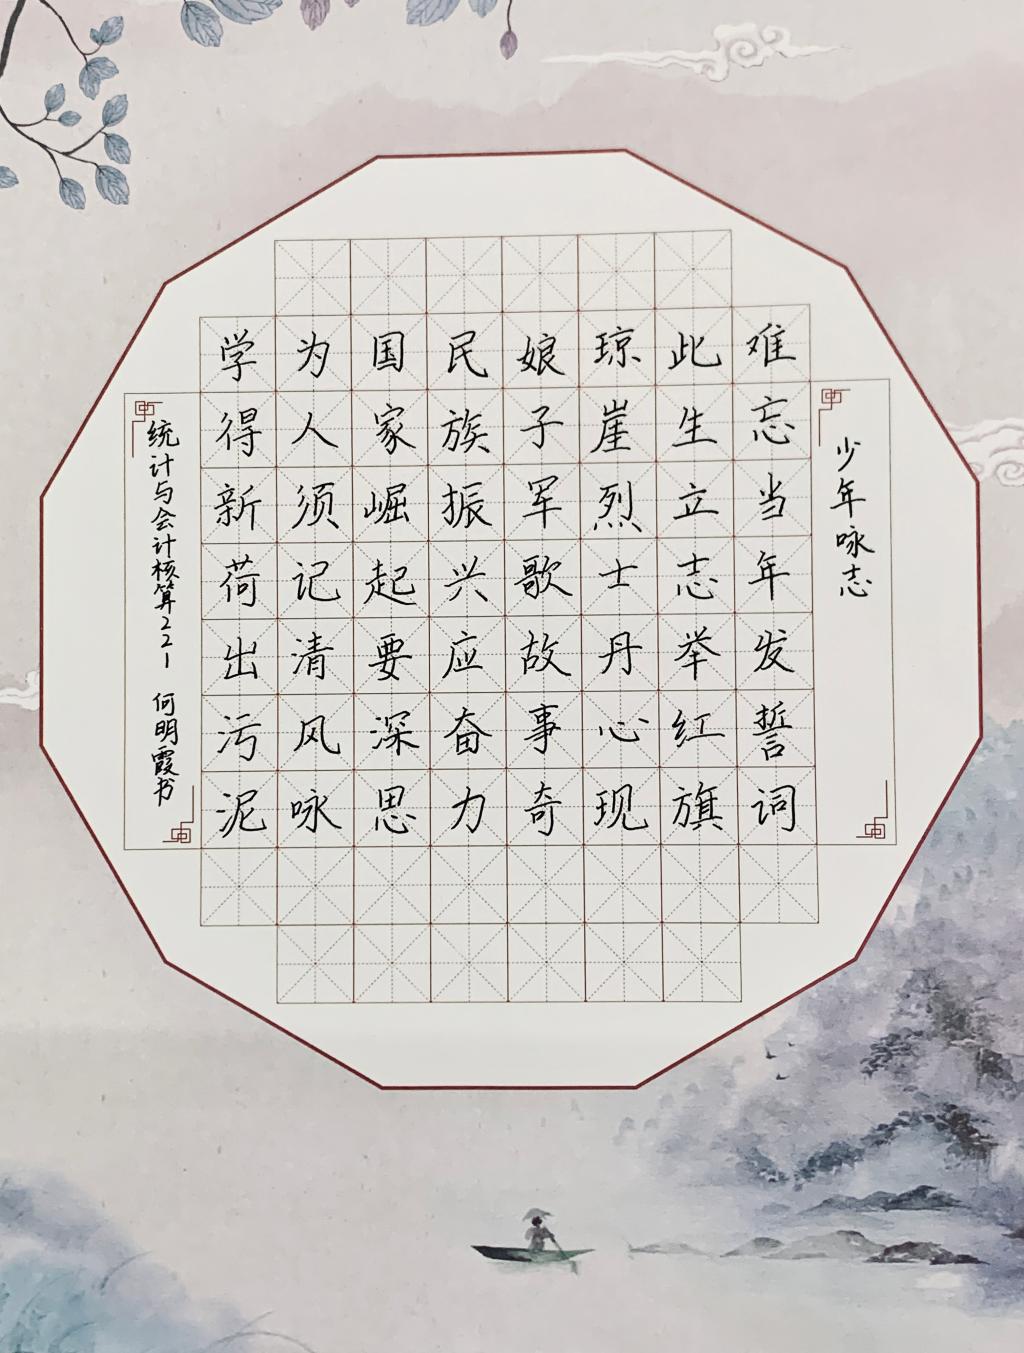 少年咏志
难忘当年发誓词
此生立志举红旗
琼崖烈士丹心现
娘子军歌故事奇
民族振兴应奋力
国家崛起要深思
为人须记清风咏
学得新荷出污泥
统计与会计核算221 何明霞书